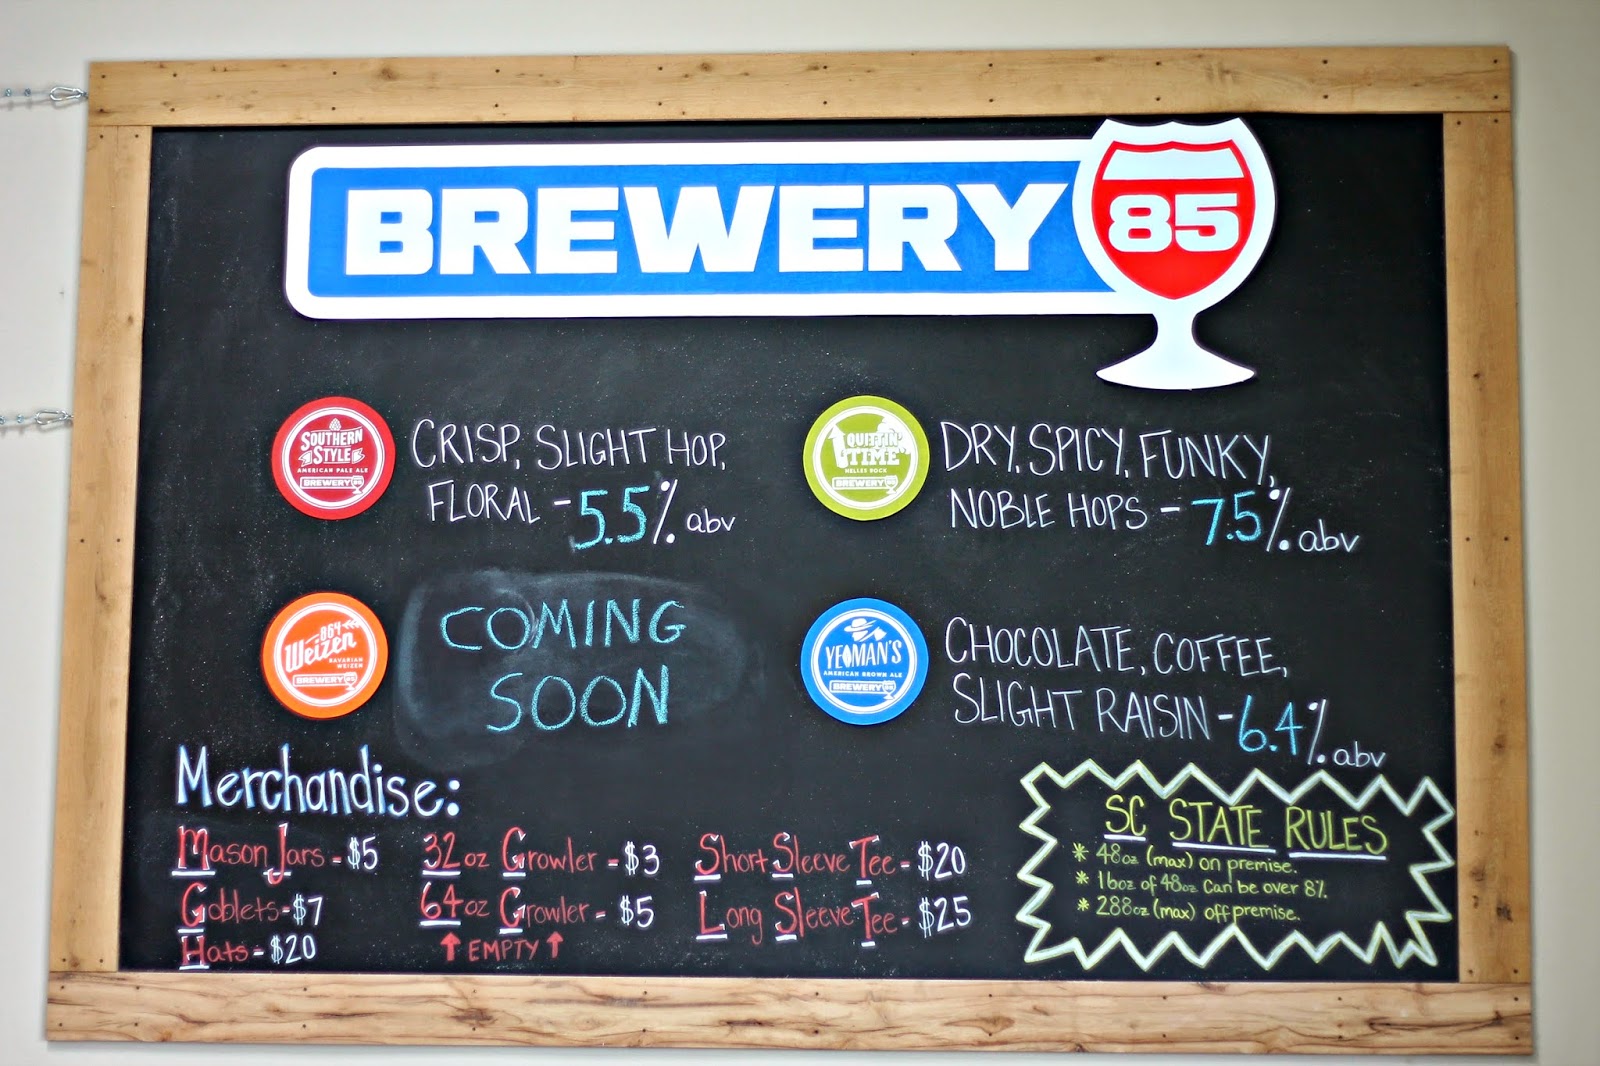 BREWERY 85
SOUTHERN
STYLE
AMERICAN PALE ALE
BREWERY 85
CRISP, SLIGHT HOP,
FLORAL - 5.5% abv
QUITTIN'
TIME
HELLES BOCK
BREWERY 85
DRY, SPICY, FUNKY,
NOBLE HOPS - 7.5% abv
864
Weizen
BAVARIAN
WEIZEN
BREWERY 85
COMING
SOON
YEOMAN'S
AMERICAN BROWN ALE
BREWERY 85
CHOCOLATE, COFFEE,
SLIGHT RAISIN - 6.4% abv
Merchandise:
Mason Jars - $5
Goblets - $7
Hats - $20
32oz Growler - $3
64oz Growler - $5
EMPTY
Short Sleeve Tee - $20
Long Sleeve Tee - $25
SC STATE RULES
* 48oz (max) on premise.
* 16oz of 48oz can be over 8%
* 288oz (max) off premise.